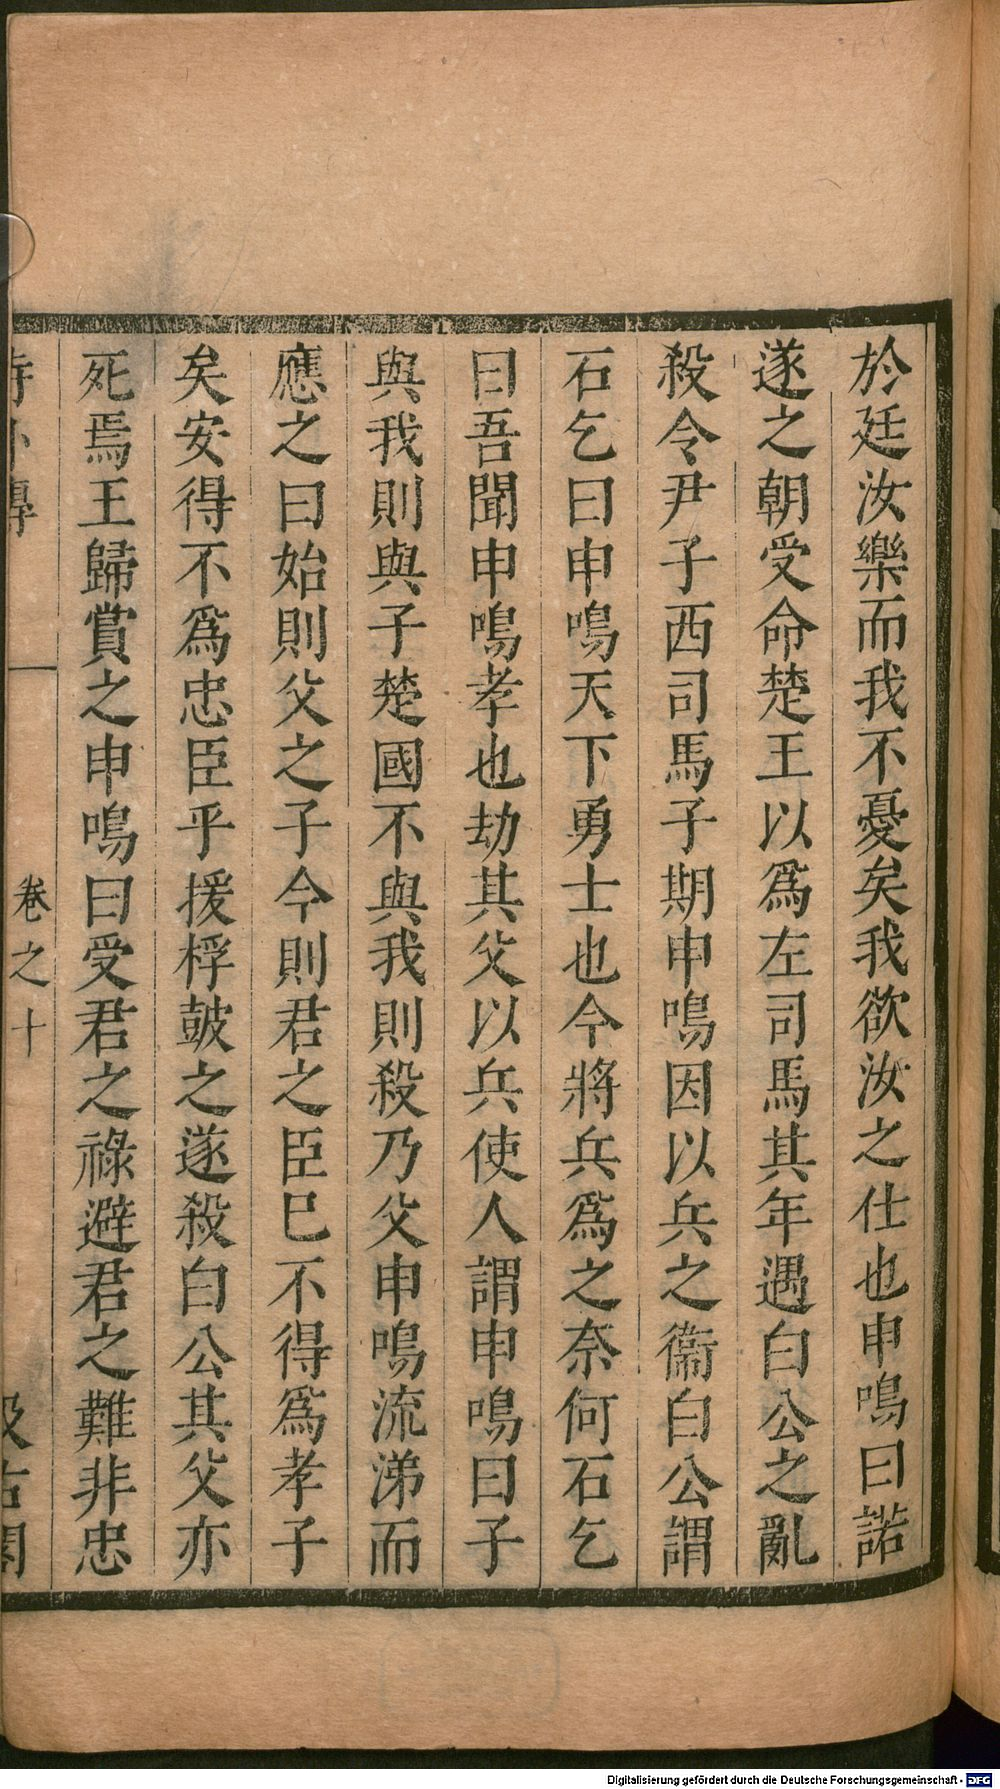 於廷汝樂而我不憂矣我欲汝之仕也申鳴曰諾
遂之朝受命楚王以爲左司馬其年遇白公之亂
殺令尹子西司馬子期申鳴因以兵之衞白公謂
石乞曰申鳴天下勇士也今將兵爲之奈何石乞
曰吾聞申鳴孝也劫其父以兵使人謂申鳴曰子
與我則與子楚國不與我則殺乃父申鳴流涕而
應之曰始則父之子今則君之臣已不得爲孝子
矣安得不爲忠臣乎援桴鼓之遂殺白公其父亦
死焉王歸賞之申鳴曰受君之祿避君之難非忠
詩外傳 卷之十 汲古閣
Digitalisierung gefördert durch die Deutsche Forschungsgemeinschaft - DFG